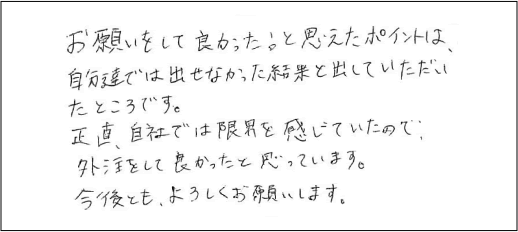 お願いをして良かった！と思えたポイントは、
自分達では出せなかった結果と出していただい
たところです。
正直、自社では限界を感じていたので、
外注をして良かったと思っています。
今後とも、よろしくお願いします。